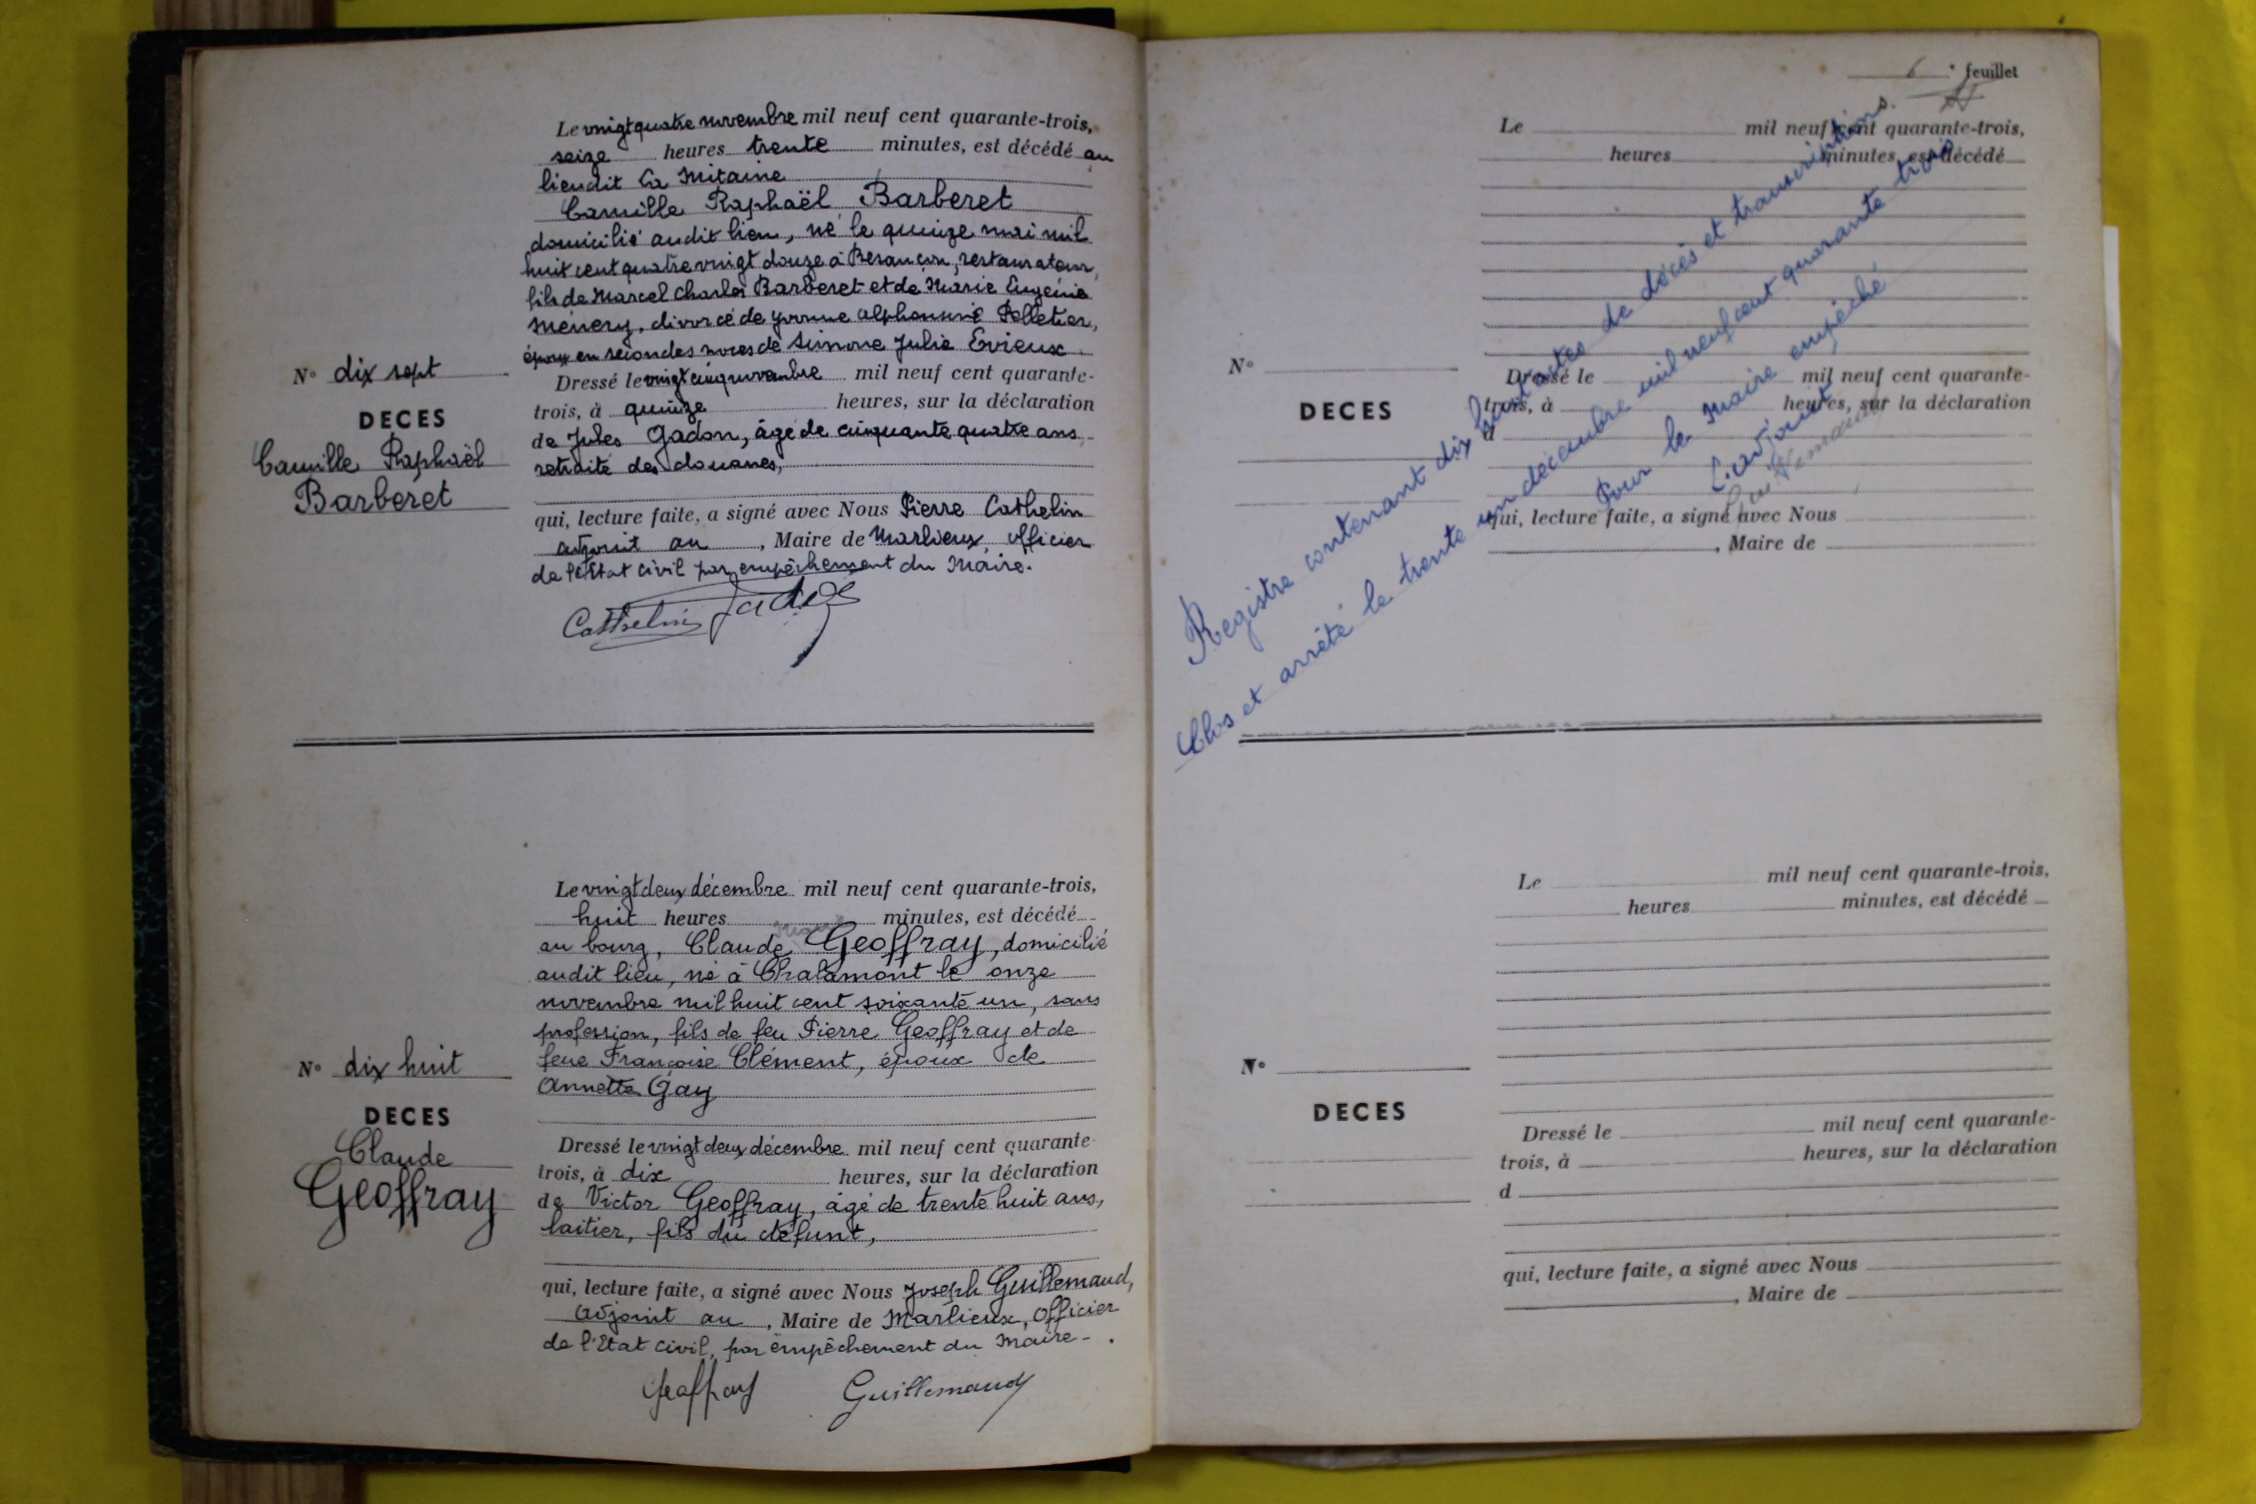 Le vingt quatre novembre mil neuf cent quarante-trois,
seize heures trente minutes, est décédé au
lieudit La Mitaine
Camille Raphaël Barberet
domicilié audit lieu, né le quinze mai mil
huit cent quatre vingt douze à Besançon, restaurateur,
fils de Marcel Charles Barberet et de Marie Eugénie
Ménery, divorcé de Yvonne Alphonsine Pelletier,
époux en secondes noces de Simone Julie Evieux
N° dix sept
DECES
Camille Raphaël
Barberet
Dressé le vingt cinq novembre mil neuf cent quarante-
trois, à quinze heures, sur la déclaration
de Jules Gadon, âgé de cinquante quatre ans
retraité des douanes,
qui, lecture faite, a signé avec Nous Pierre Cathelin
adjoint au , Maire de Marlieux, officier
de l'Etat civil par empêchement du Maire.
Cathelin
Le vingt deux décembre mil neuf cent quarante-trois,
huit heures minutes, est décédé
au bourg, Claude Geoffray, domicilié
audit lieu, né à Chalamont le onze
novembre mil huit cent soixante un, sans
profession, fils de feu Pierre Geoffray et de
feue Françoise Clément, époux de
Annette Gay
N° dix huit
DECES
Claude
Geoffray
Dressé le vingt deux décembre mil neuf cent quarante-
trois, à dix heures, sur la déclaration
de Victor Geoffray, âgé de trente huit ans,
laitier, fils du défunt,
qui, lecture faite, a signé avec Nous Joseph Guillemaud,
adjoint au , Maire de Marlieux, officier
de l'Etat civil, par empêchement du Maire - .
Geoffray Guillemaud
6 e feuillet
Le mil neuf cent quarante-trois,
heures minutes, est décédé
N°
DECES
Dressé le mil neuf cent quarante-
trois, à heures, sur la déclaration
d
qui, lecture faite, a signé avec Nous
, Maire de
Registre contenant dix huit actes de décès et transcriptions.
Clos et arrêté le trente un décembre mil neuf cent quarante trois
Pour le Maire empêché
L'adjoint
Guillemaud
Le mil neuf cent quarante-trois,
heures minutes, est décédé
N°
DECES
Dressé le mil neuf cent quarante-
trois, à heures, sur la déclaration
d
qui, lecture faite, a signé avec Nous
, Maire de